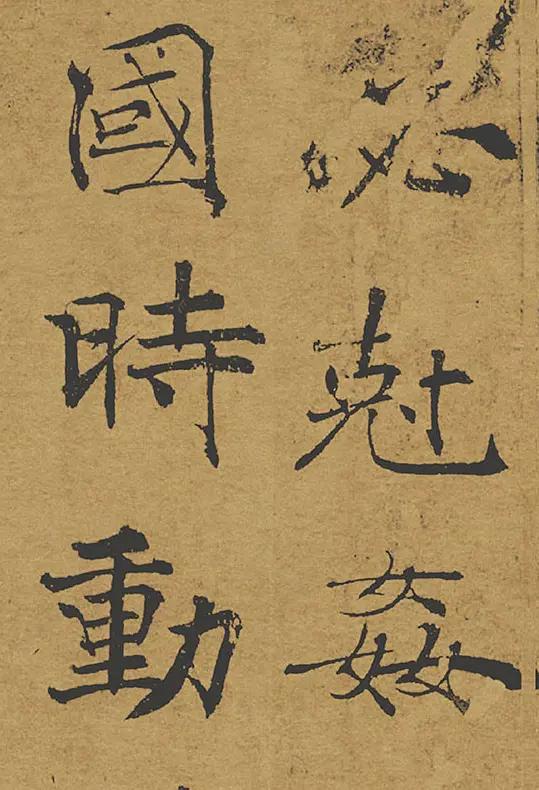 必尅姦
國時動